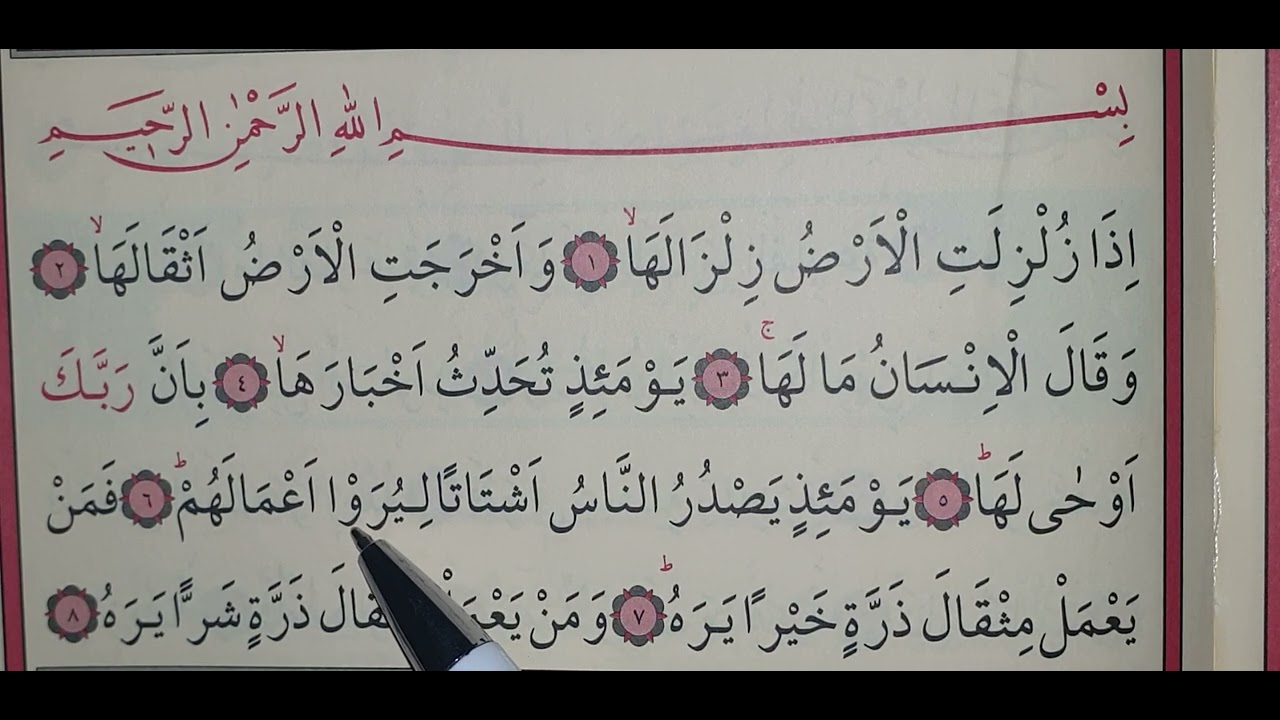 بِسْمِ اللّٰهِ الرَّحْمٰنِ الرَّحٖيمِ
اِذَا زُلْزِلَتِ الْاَرْضُ زِلْزَالَهَاۙ ﴿١﴾ وَاَخْرَجَتِ الْاَرْضُ اَثْقَالَهَاۙ ﴿٢﴾
وَقَالَ الْاِنْسَانُ مَا لَهَاۚ ﴿٣﴾ يَوْمَئِذٍ تُحَدِّثُ اَخْبَارَهَاۙ ﴿٤﴾ بِاَنَّ رَبَّكَ
اَوْحٰى لَهَاؕ ﴿٥﴾ يَوْمَئِذٍ يَصْدُرُ النَّاسُ اَشْتَاتًا لِيُرَوْا اَعْمَالَهُمْؕ ﴿٦﴾ فَمَنْ
يَعْمَلْ مِثْقَالَ ذَرَّةٍ خَيْرًا يَرَهُؕ ﴿٧﴾ وَمَنْ ذَرَّةٍ شَرًّا يَرَهُ ﴿٨﴾